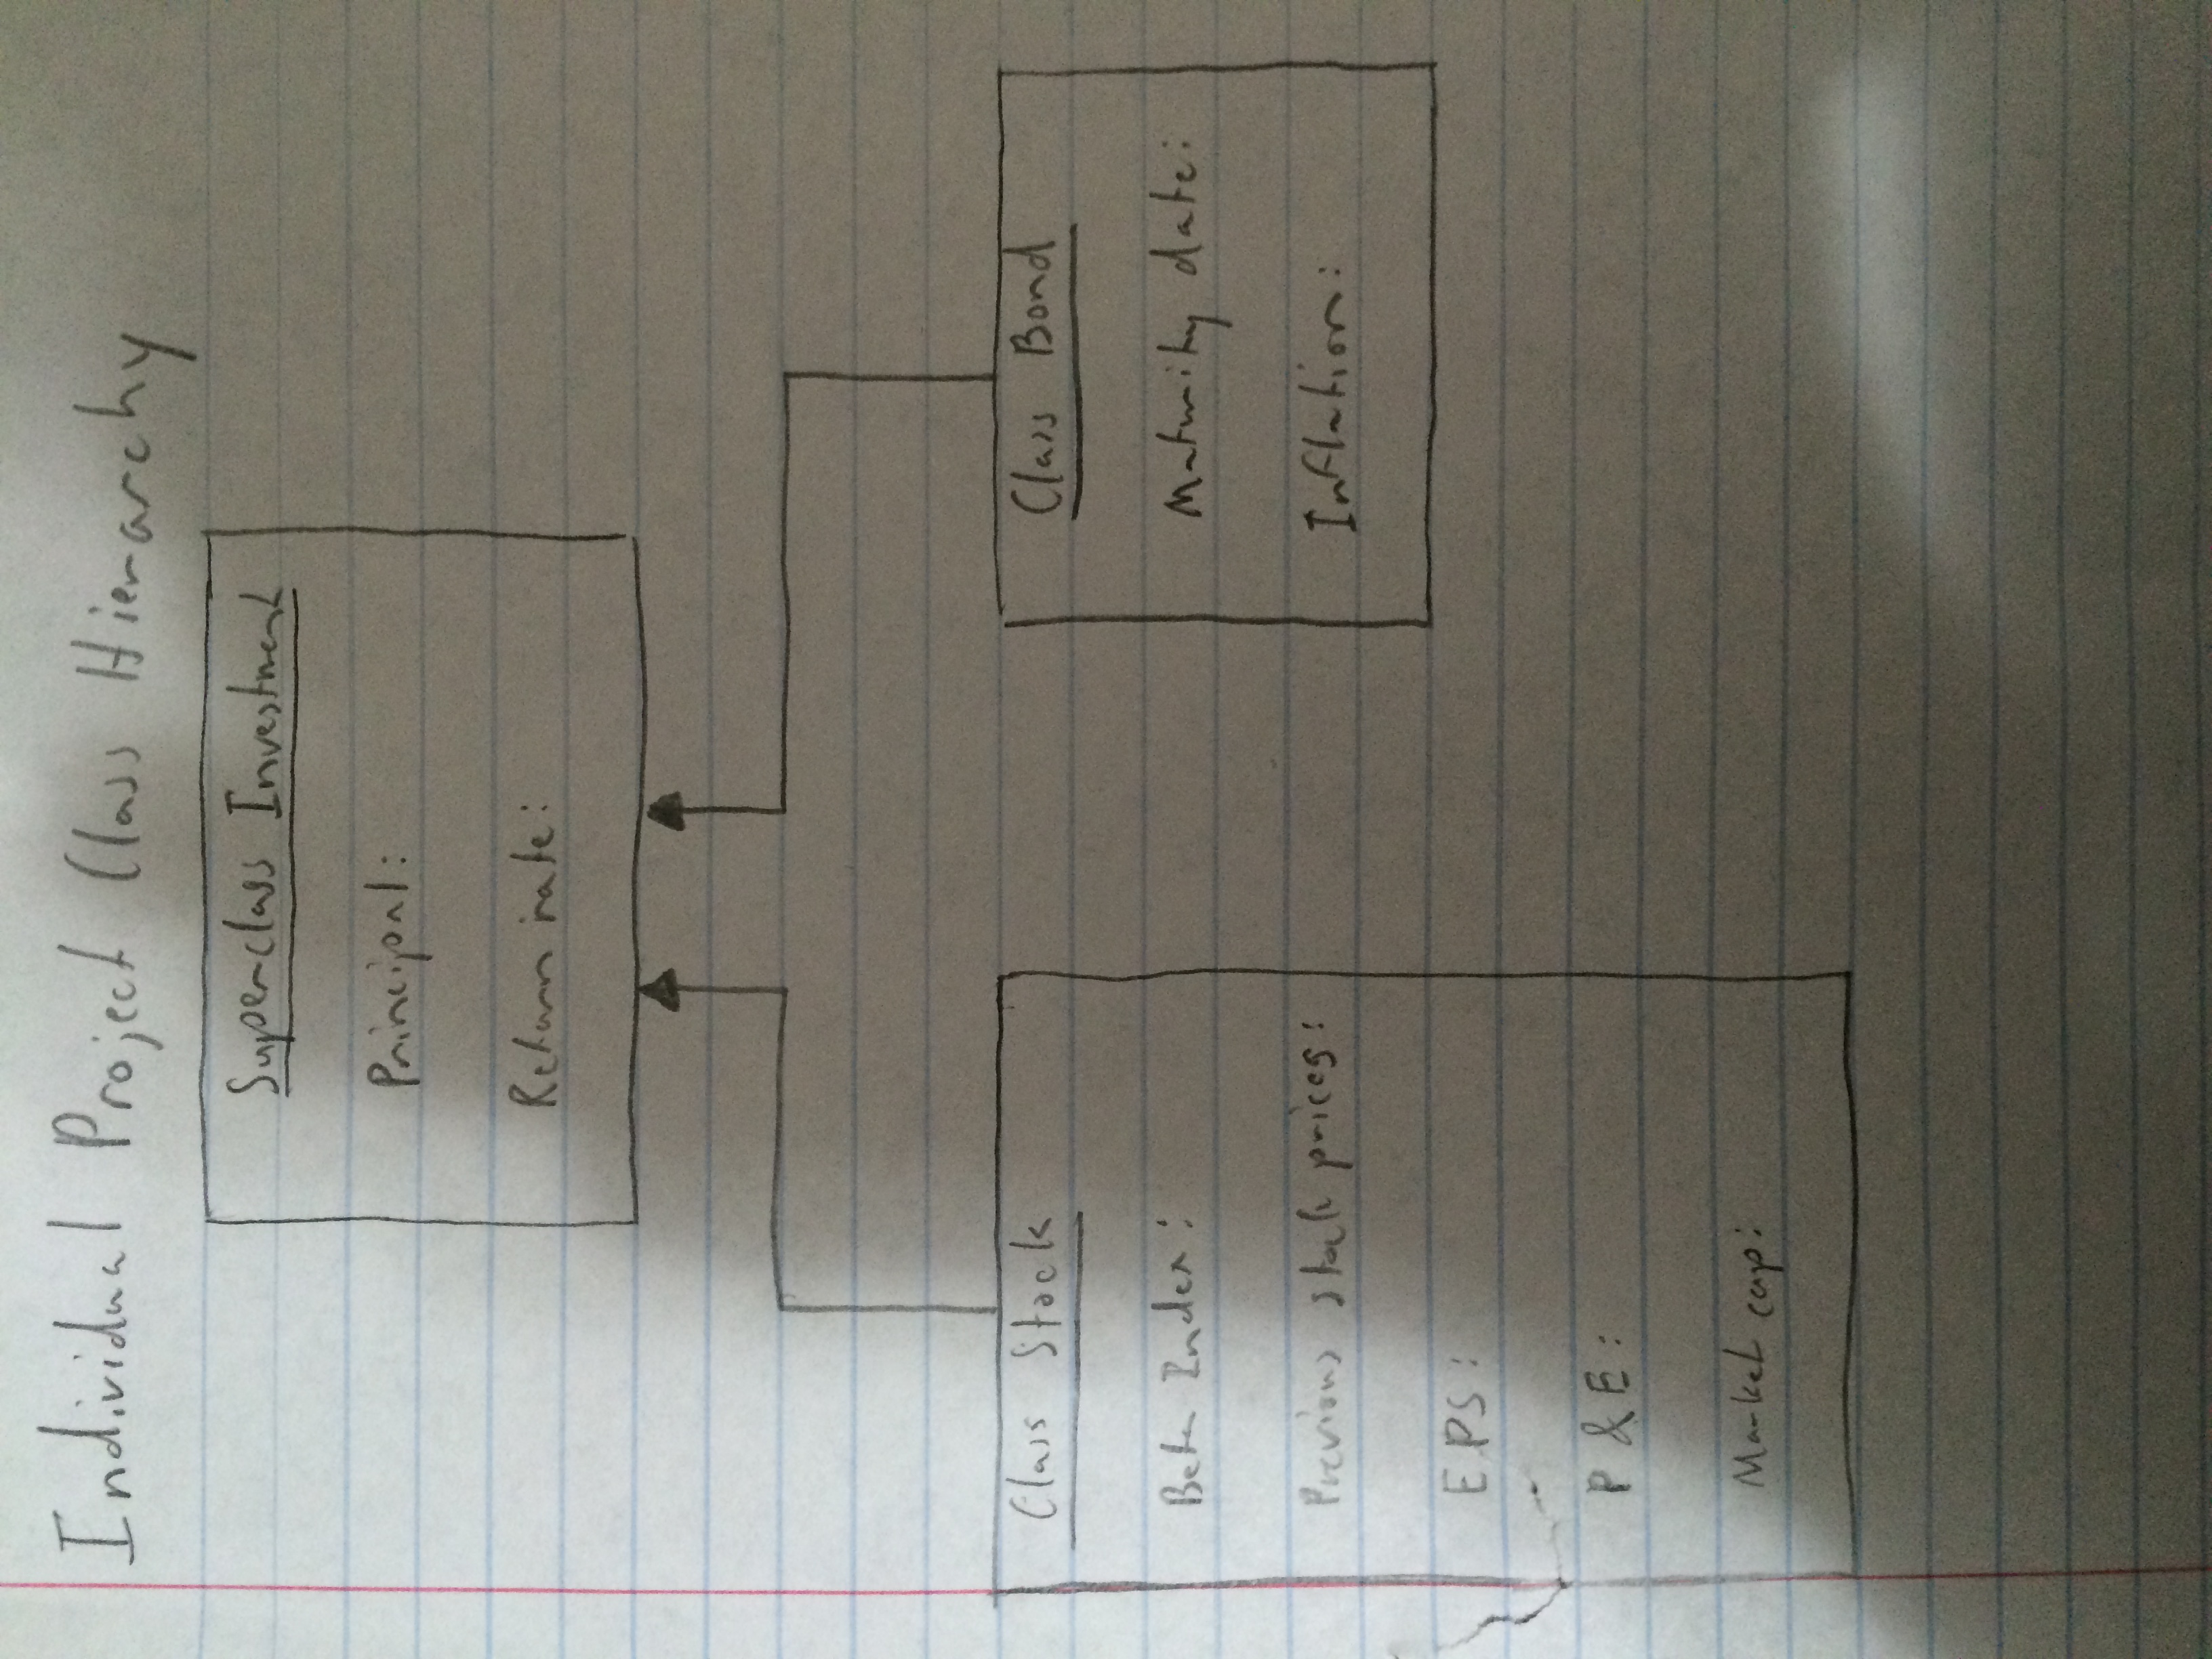 Individual Project Class Hierarchy
Superclass Investment
Principal:
Return rate:
Class Stock
Beta Index:
Previous stock prices:
EPS:
P & E:
Market cap:
Class Bond
Maturity date:
Inflation: